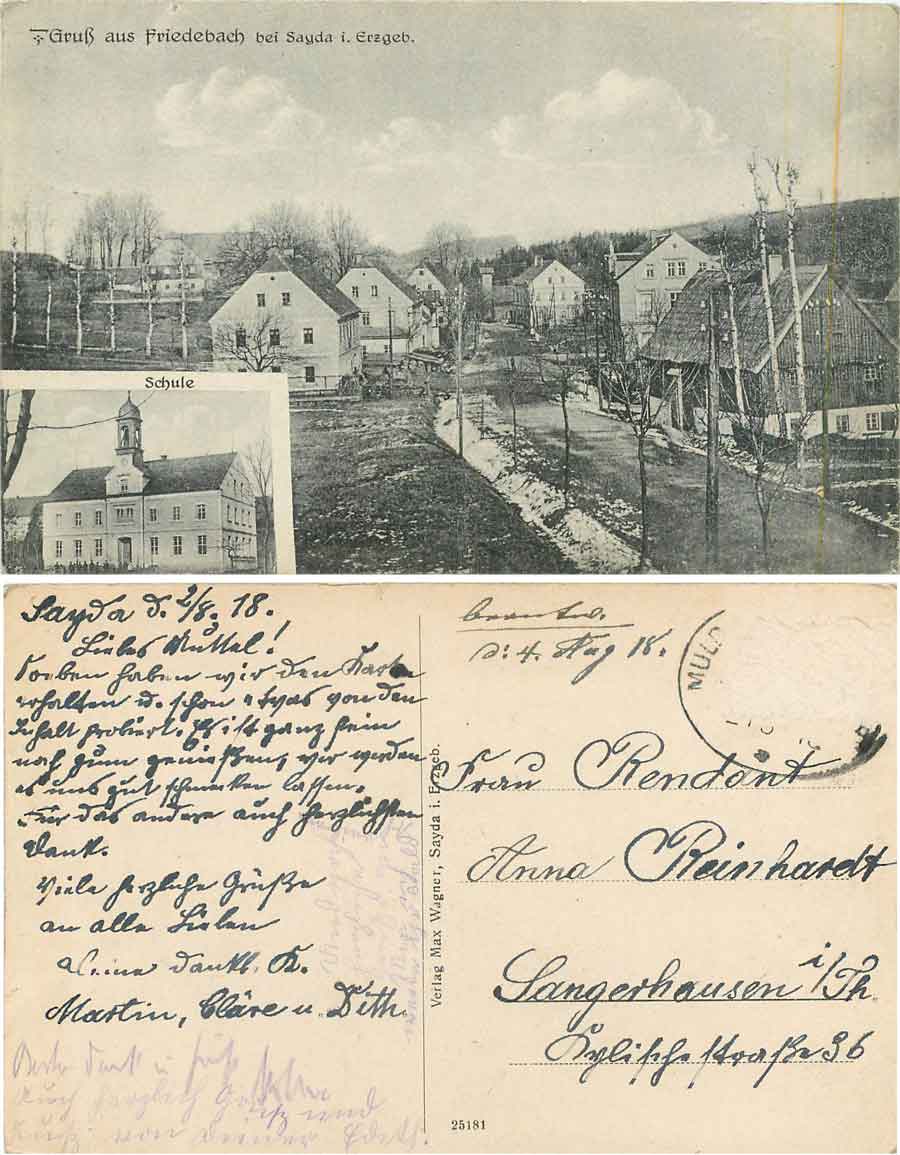 Gruß aus Friedebach bei Sayda i. Erzgeb.
Schule
Sayda d. 2/8. 18.
Liebes Muttel!
Soeben haben wir den Karton
erhalten u. schon etwas von dem
Inhalt probiert. Es ist ganz fein
noch zum genießen, wir werden
es uns gut schmecken lassen.
Für das andere auch herzlichsten
Dank.
Viele herzliche Grüße
an alle Lieben
Deine dankb. K.
Martin, Cläre u. Dith.
und
von Deiner Edith.
beantw.
d. 4. Aug 18.
MULD
Frau Rendant
Anna Reinhardt
Sangerhausen i/Th.
Kylischestraße 36
Verlag Max Wagner, Sayda i. Erzgeb.
25181